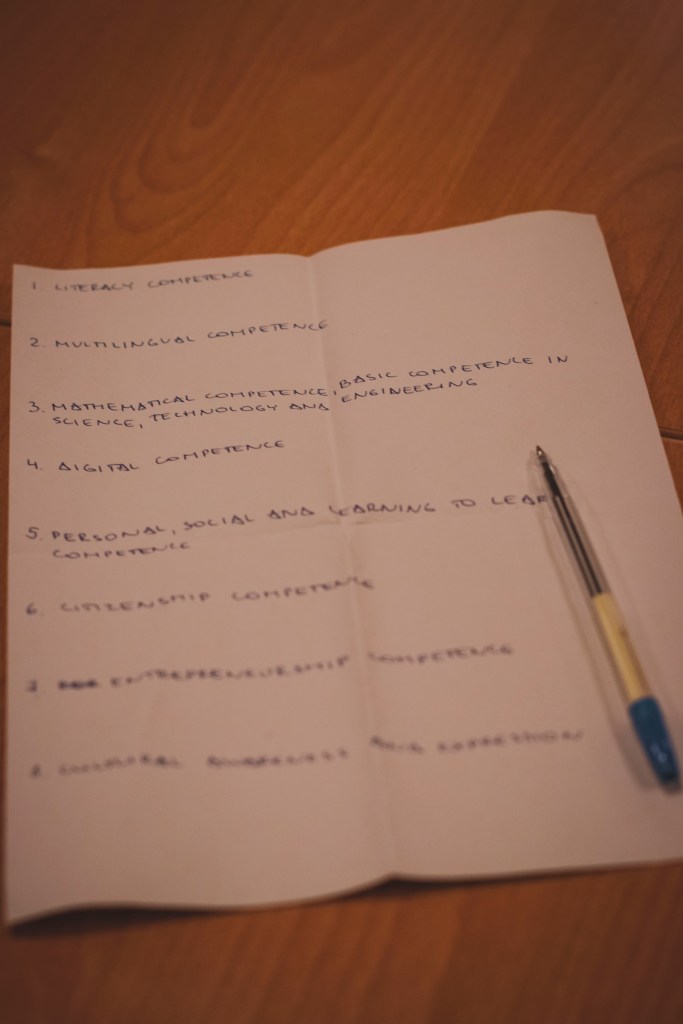 1. LITERACY COMPETENCE
2. MULTILINGUAL COMPETENCE
3. MATHEMATICAL COMPETENCE, BASIC COMPETENCE IN
SCIENCE, TECHNOLOGY AND ENGINEERING
4. DIGITAL COMPETENCE
5. PERSONAL, SOCIAL AND LEARNING TO LEAR
COMPETENCE
6. CITIZENSHIP COMPETENCE
7. ENTREPRENEURSHIP COMPETENCE
8. CULTURAL AWARENESS AND EXPRESSION